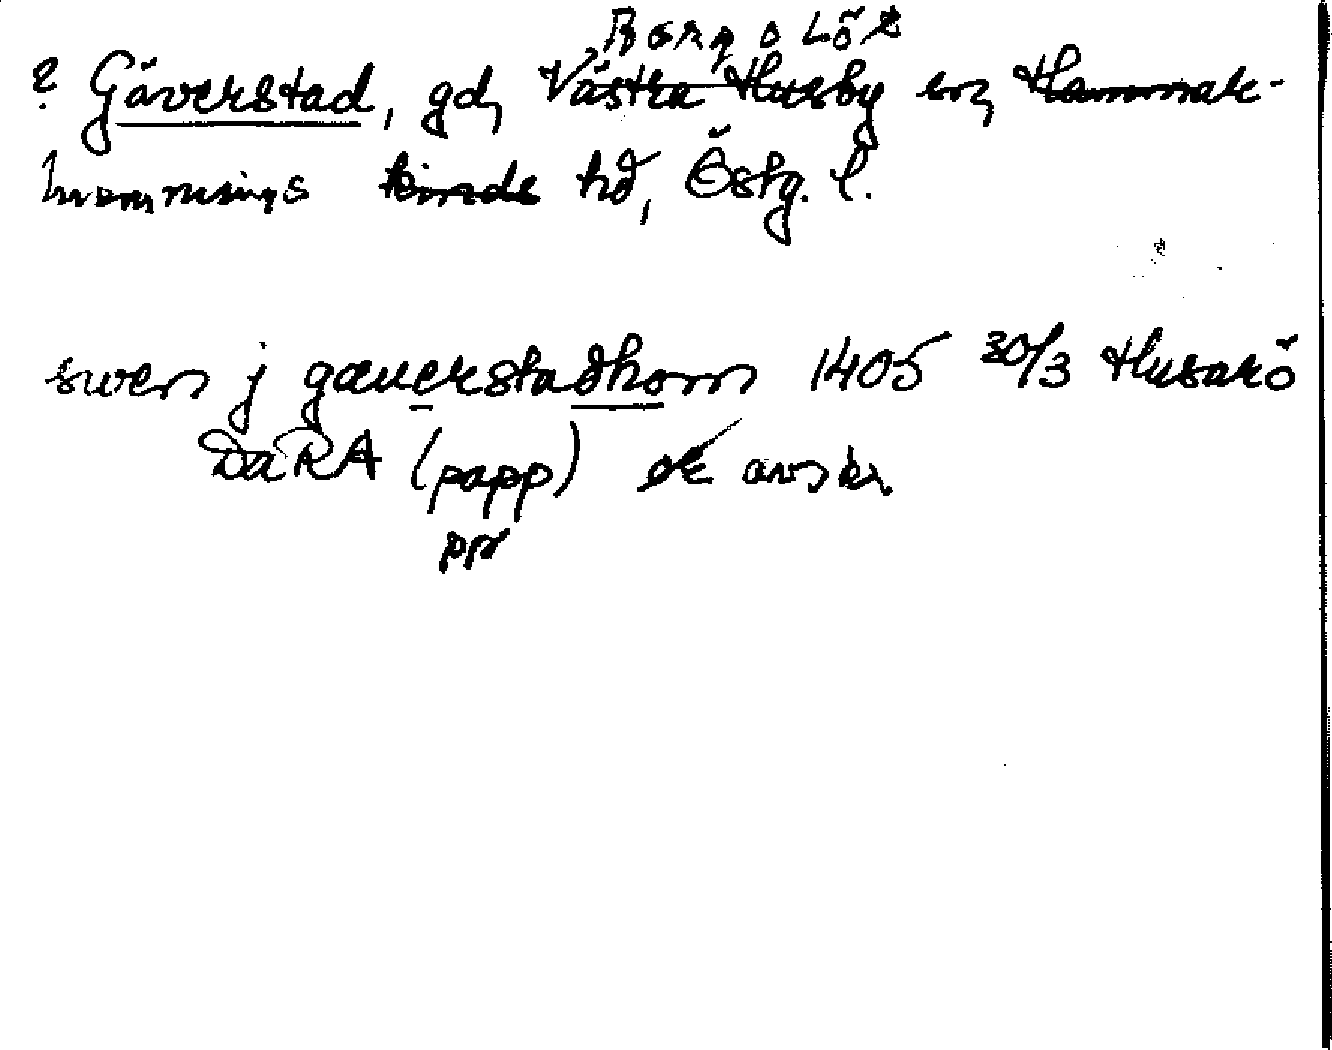 Borg o Löt
? Gäverstad, gd, Västra Husby sn, Hammar-
kinds hd, Östg. l.
swen j gæuerstadhom 1405 30/3 Husarö
DaRA (papp) avskr.
ppr